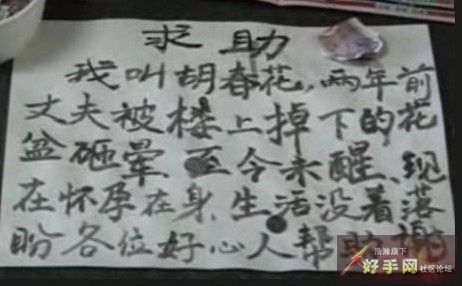 求助
我叫胡春花，两年前
丈夫被楼上掉下的花
盆砸晕至今未醒、现
在怀孕在身、生活没着落
盼各位好心人帮助谢
浩瀚旗下
好手网社区论坛